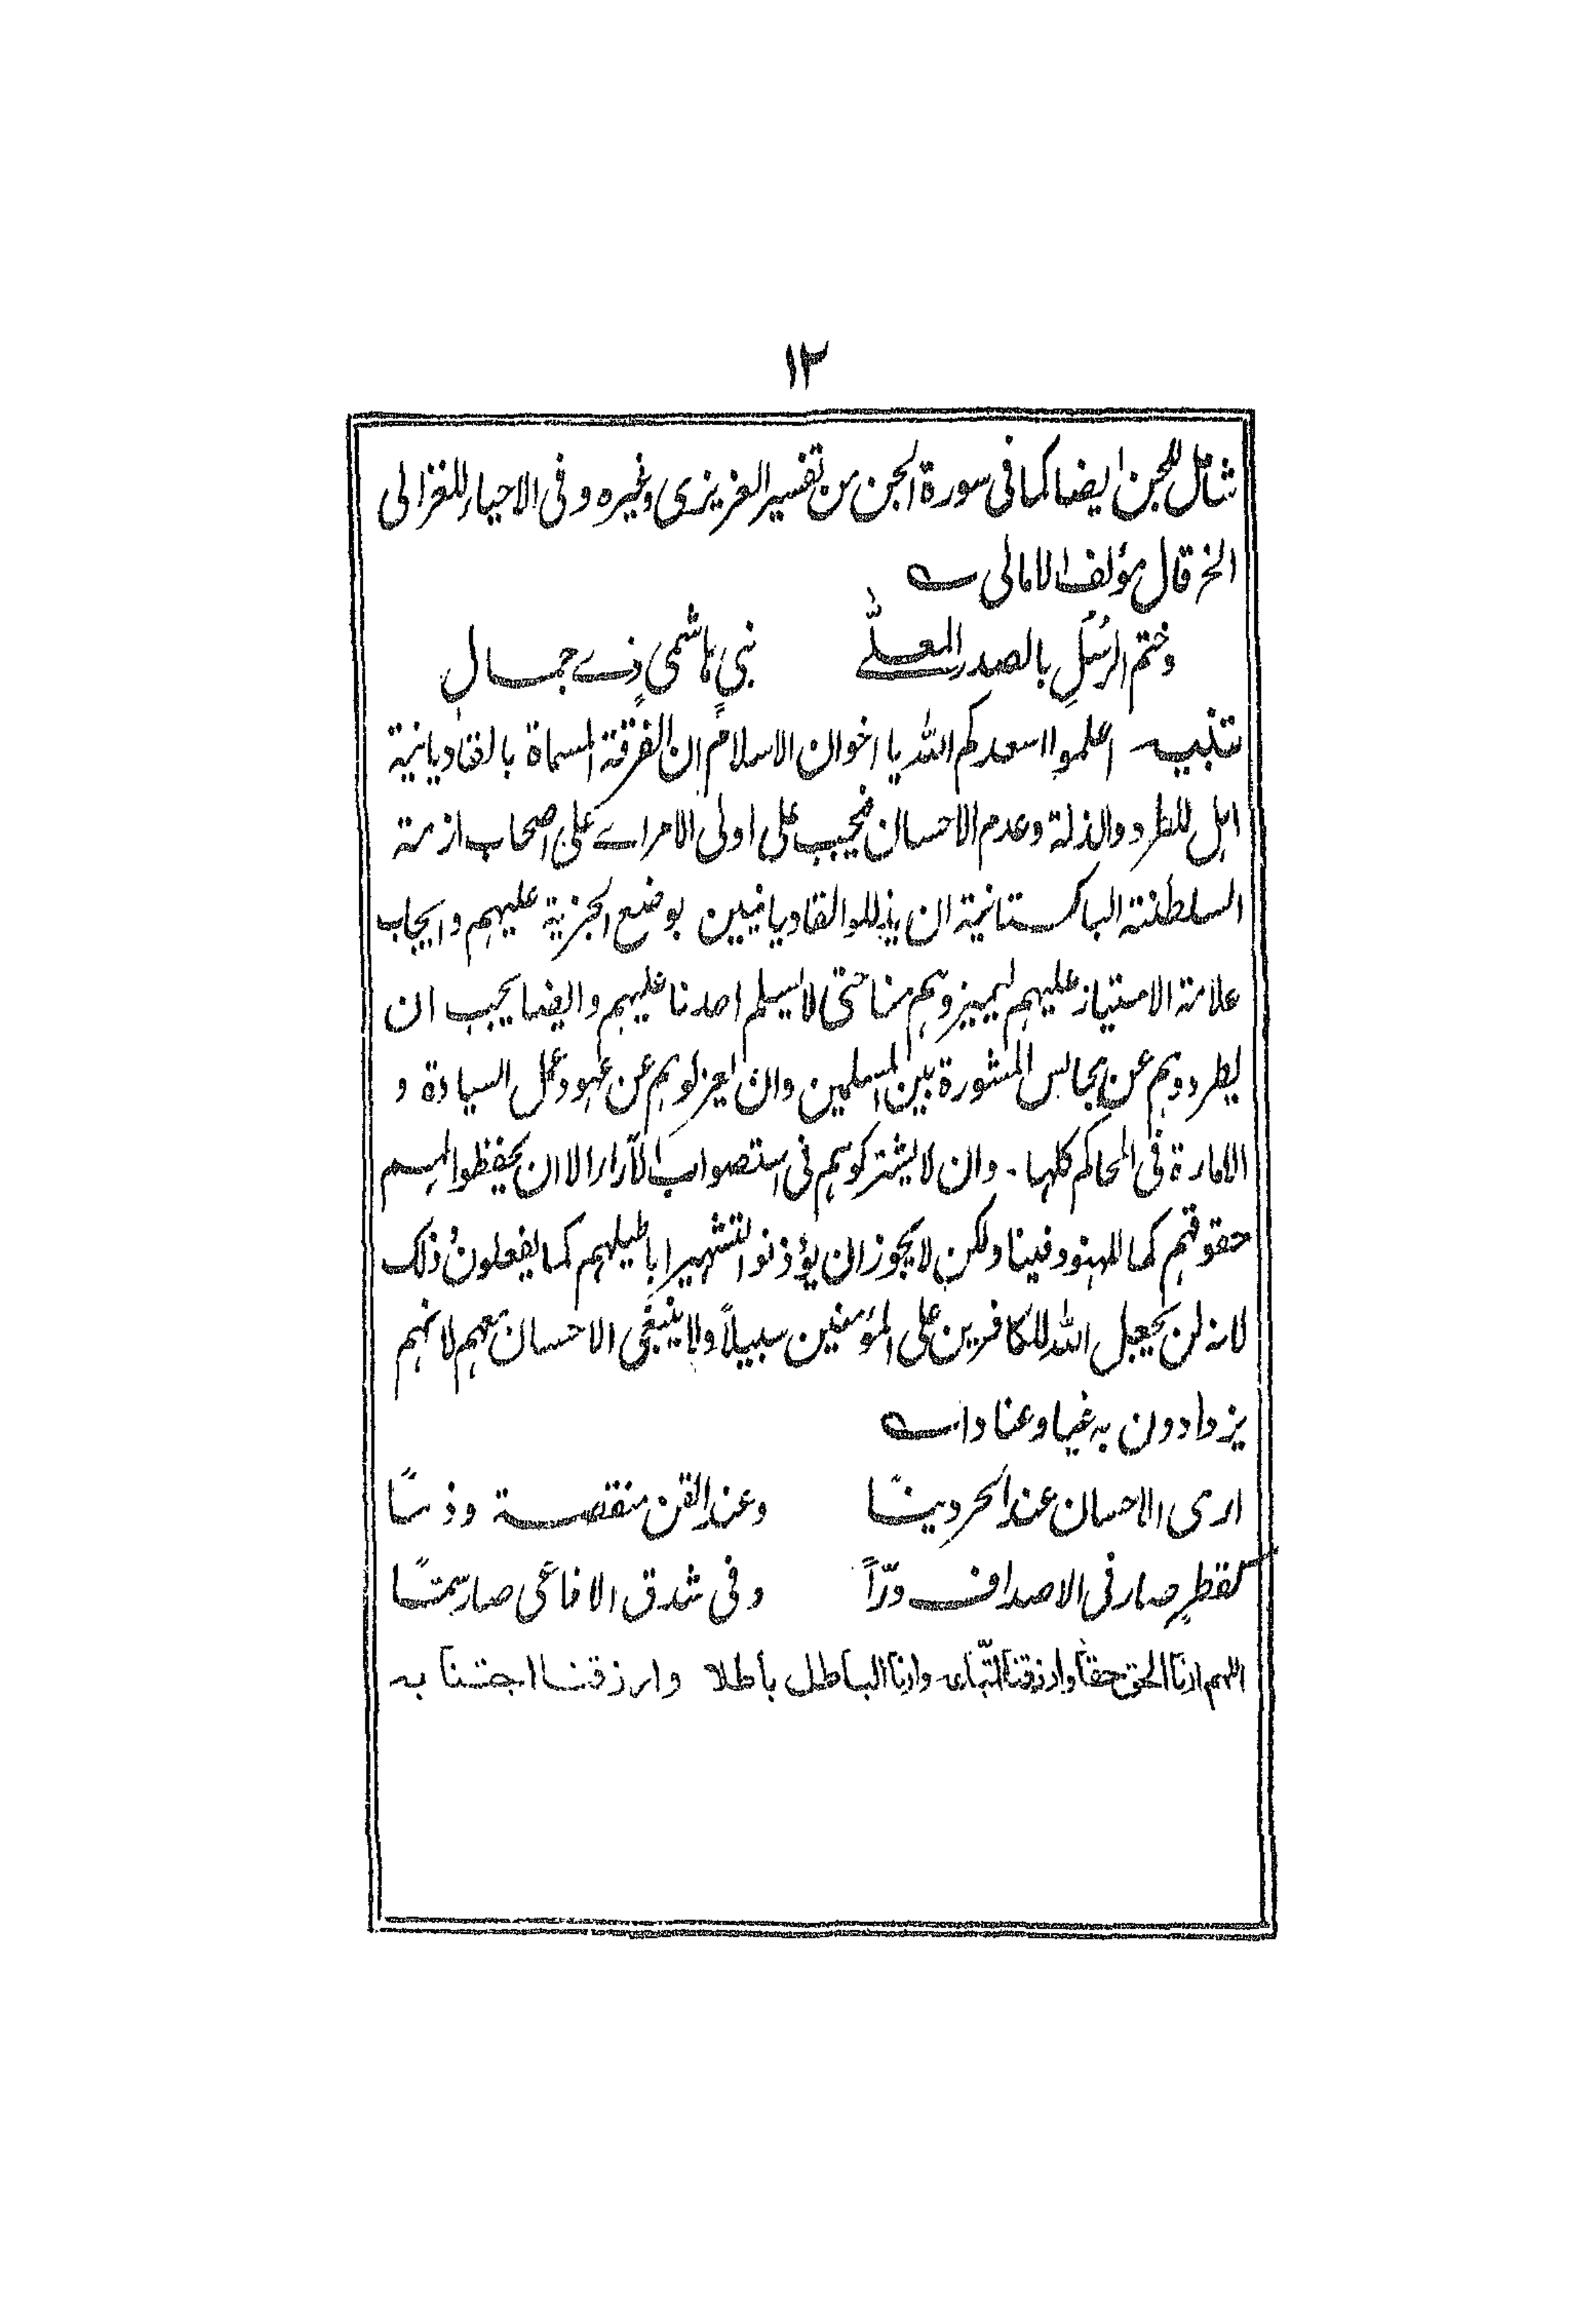 ١٢
شامل للجن ايضا كما فى سورة الجن من تفسير العزيزى وغيره وفى الاحياء للغزالى
الخ قال مؤلف الامالى ؎
وختم الرُسُلِ بالصدر المعلّٰے نبىٍ هاشمىٍ ذے جمالٖ
تنبيه اعلموا اسعدكم الله يا اخوان الاسلام ان الفرقة المسماة بالقاديانية
اهل للطرد والذلة وعدم الاحسان فيجب على اولى الامر اے على اصحاب ازمة
السلطنة الباكستانية ان يذللوا القاديانيين بوضع الجزية عليهم وايجاب
علامة الامتياز عليهم ليميزوهم منا حتى لا يسلم احدنا عليهم وايضا يجب ان
يطردوهم عن مجالس المشورة بين المسلمين وان يعزلوهم عن عهود عمل السيادة و
الامارة فى المحاكم كلها ۔ وان لا يشتركوهم فى استصواب الآراء الا ان يحفظوا لهم
حقوقهم كما للهنود فينا ولكن لا يجوز ان يؤذنوا لتشهير اباطيلهم كما يفعلون ذلك
لانه لن يجعل الله للكافرين على المؤمنين سبيلاً ولا ينبغى الاحسان معهم لانهم
يزدادون به غيا وعنادا ؎
ارى الاحسان عند الحر دينًا وعند القن منقصة وذمًا
كقطرٍ صار فى الاصداف درّاً وفى شدق الافاعى صار سمًا
اللهم ارنا الحق حقا وارزقنا اتّباعه وارنا الباطل باطلا وارزقنا اجتنابه